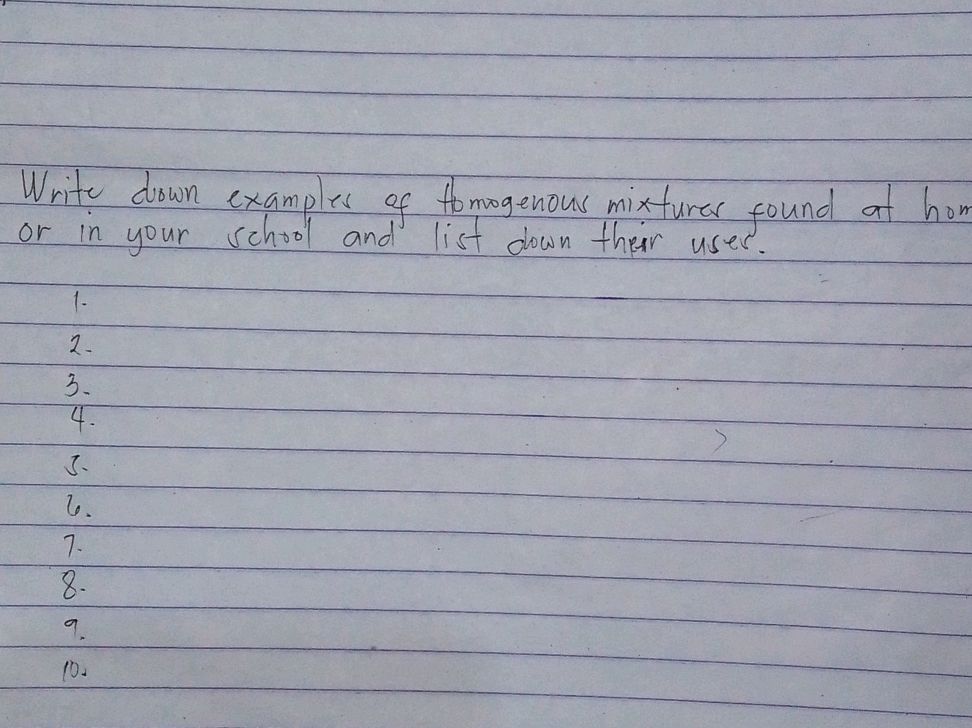 Write down examples of Homogenous mixtures found at hom
or in your school and list down their uses.
1.
2.
3.
4.
5.
6.
7.
8.
9.
10.